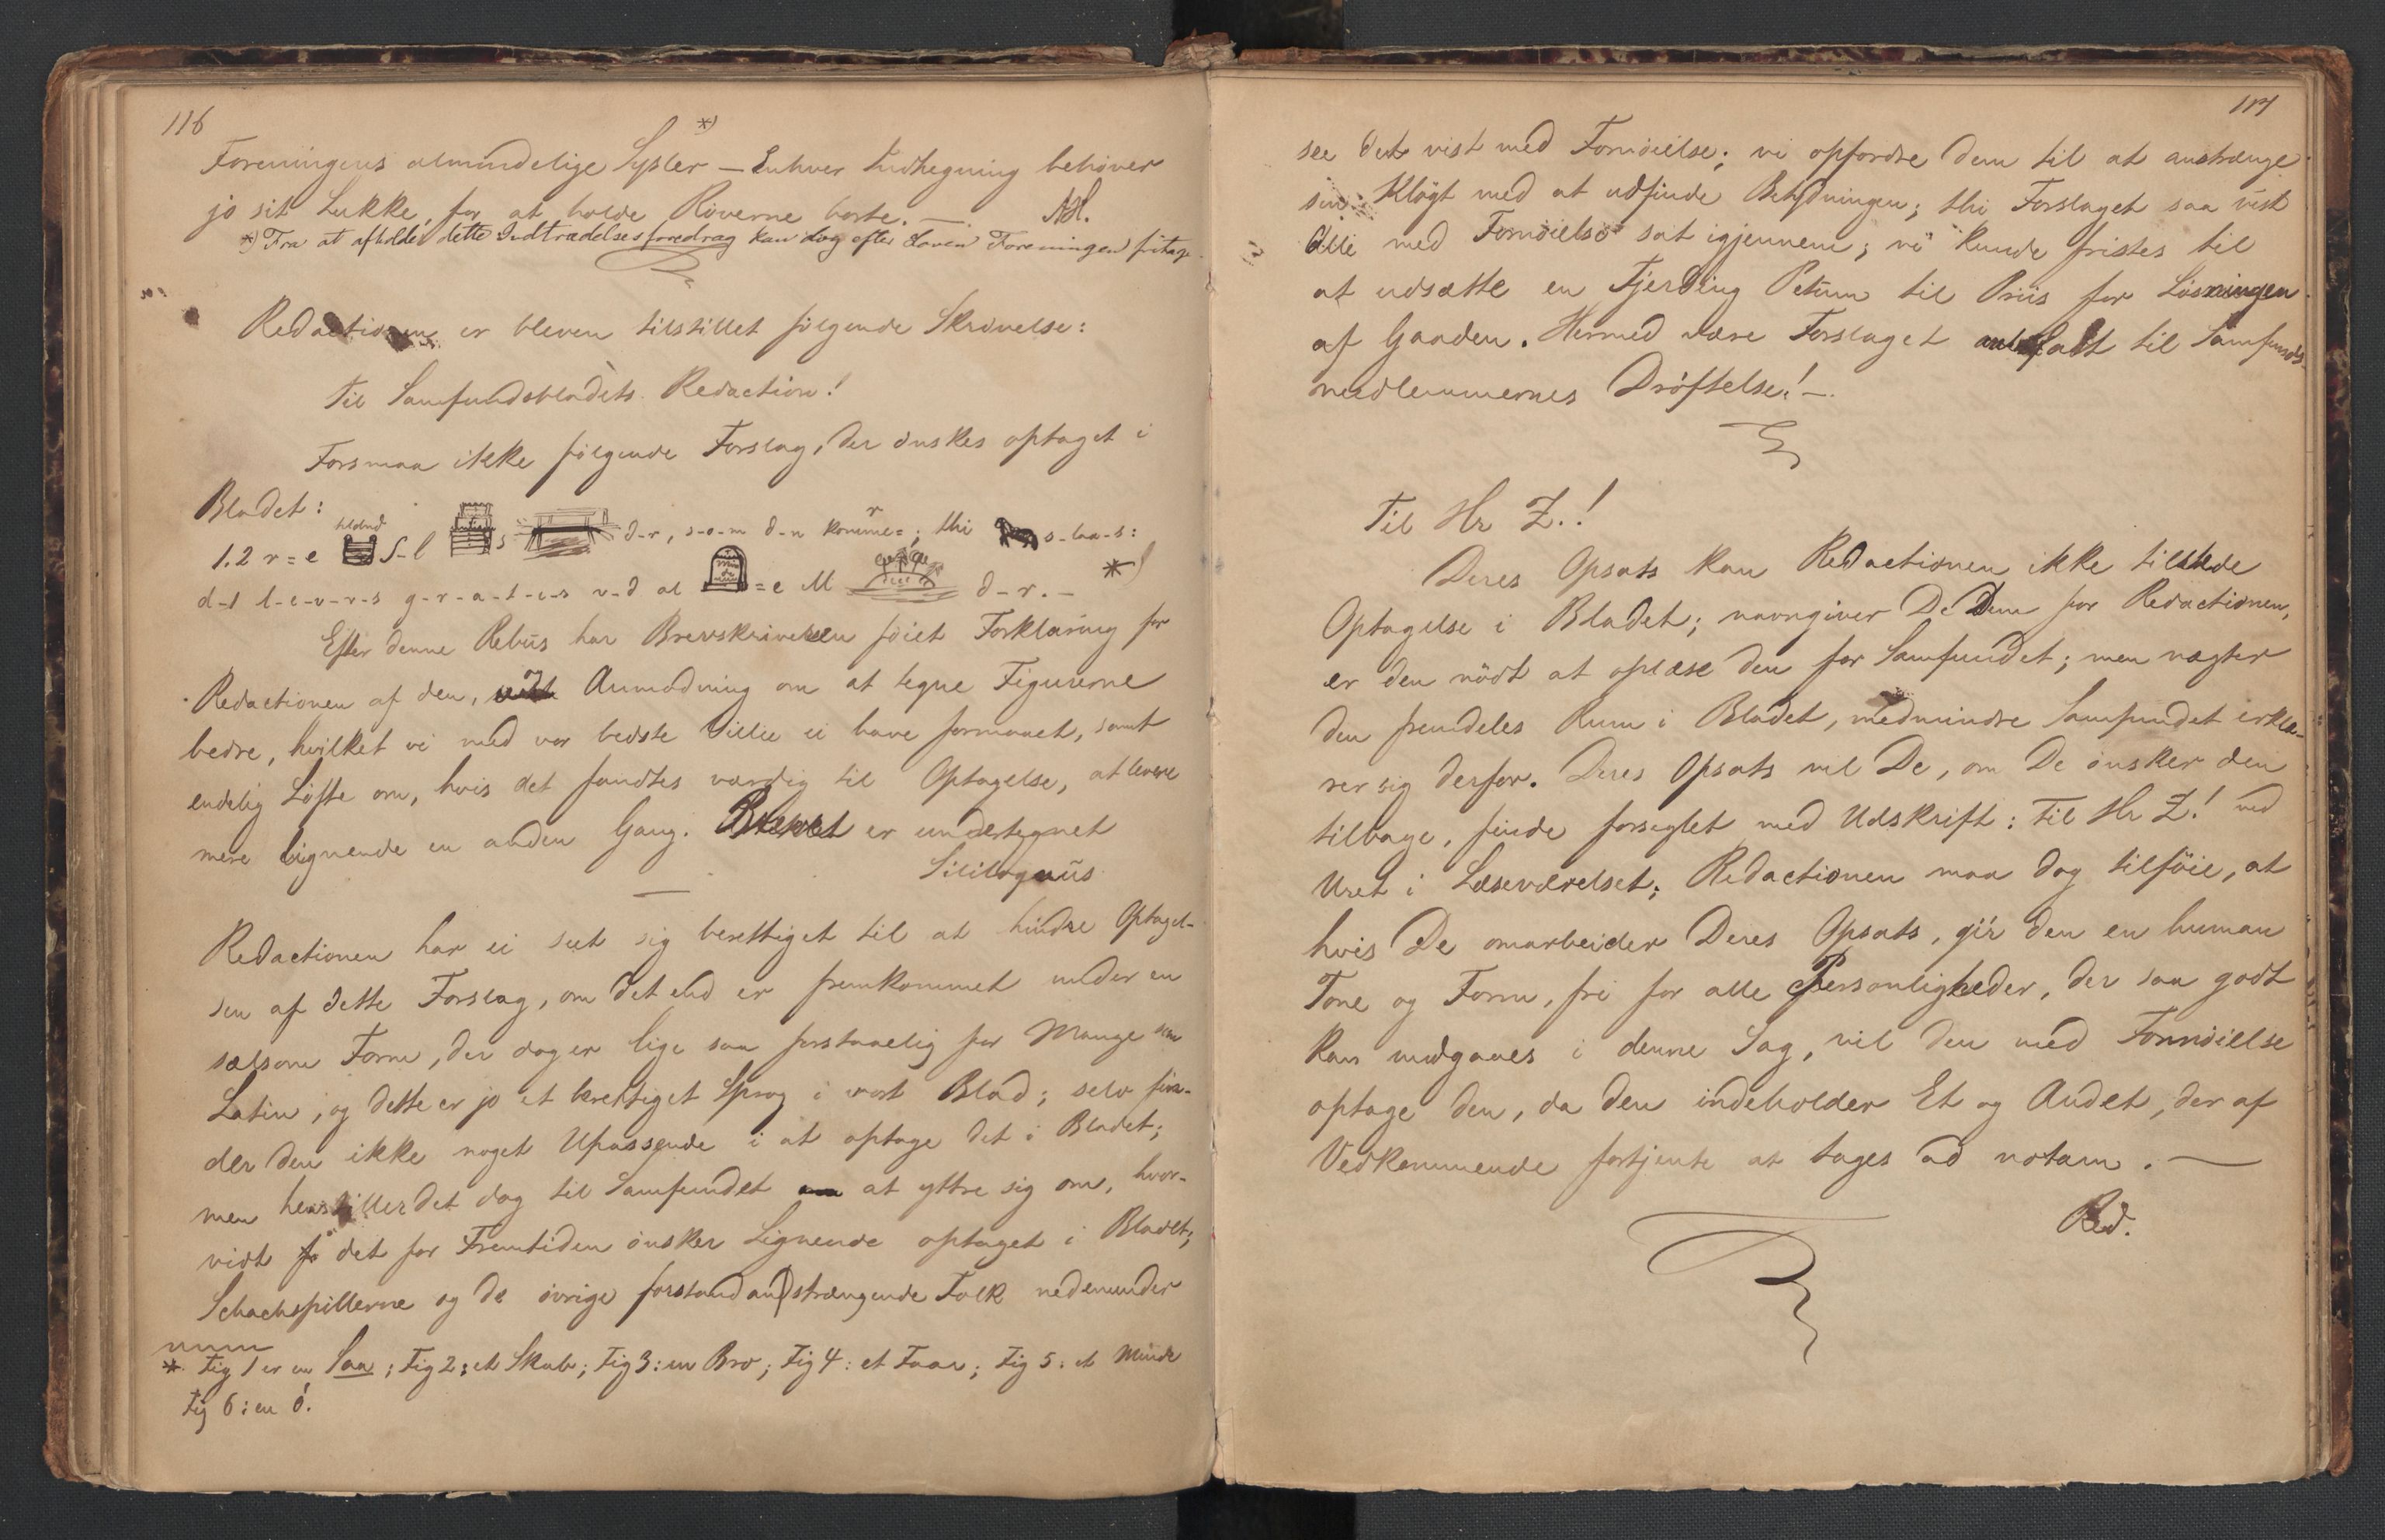 116
*)
Foreningens almindelige Sysler — Enhver Indhegning behøver
jo sit Lukke, for at holde Røverne borte. — 
*) Fra at afholde dette Indtrædelsesforedrag kan dog efter Loven Foreningen fritage.
Redactionen er bleven tilstillet følgende Skrivelse:
Til Samfundsbladets Redaction!
Forsmaa ikke følgende Forslag, der ønskes optaget i
Bladet:
1.2 r=e S-l s d-r, s-o-m d-n komme=r; thi s-laa-s:
d-t l-e-v-r-s g-r-a-t-i-s v-d at =e M d-r. — *)
Efter denne Rebus har Brevskriveren føiet Forklaring for
Redactionen af den, og Anmodning om at tegne Figurerne
bedre, hvilket vi med vor bedste Villie ei have formaaet, samt
endelig Løfte om, hvis det fandtes værdig til Optagelse, at levere
mere lignende en anden Gang. Brevet er undertegnet
Redactionen har ei seet sig berettiget til at hindre Optagel-
sen af dette Forslag, om det end er fremkommet under en
sælsom Form, der dog er lige saa forstaaelig for Mange som
Latin, og dette er jo et berettiget Sprog i vort Blad; selv fin-
der den ikke noget Upassende i at optage det i Bladet;
men henstiller det dog til Samfundet at yttre sig om, hvor-
vidt det for Fremtiden ønsker Lignende optaget i Bladet;
Schachspillerne og de øvrige forstandanstrængende Folk nedenunder
* Fig 1 er en Saa; Fig 2: et Skab; Fig 3: en Bro; Fig 4: et Faar; Fig 5: et Minde
Fig 6: en Ö.
117
see det vist med Fornöielse; vi opfordre dem til at anstrænge
sin Kløgt med at udfinde Betydningen; thi Forslaget saa vist
Alle med Fornöielse sat igjennem; vi kunde fristes til
at udsætte en Fjerding Petum til Priis for Løsningen
af Gaaden. Hermed være Forslaget anbefalt til Samfunds-
medlemmernes Dröftelse! —
Til Hr Z.!
Deres Opsats kan Redactionen ikke tilstede
Optagelse i Bladet; navngiver De Dem for Redactionen,
er den nödt at oplæse den for Samfundet; men nægter
den fremdeles Rum i Bladet, medmindre Samfundet erklæ-
rer sig derfor. Deres Opsats vil De, om De ønsker den
tilbage, finde forseglet med Udskrift: Til Hr Z.! ved
Uret i Læseværelset; Redactionen maa dog tilföie, at
hvis De omarbeider Deres Opsats, gi'r den en human
Tone og Form, fri for alle Personligheder, der saa godt
kan undgaaes i denne Sag, vil den med Fornöielse
optage den, da den indeholder Et og Andet, der af
Vedkommende fortjente at tages ad notam. —
Red.